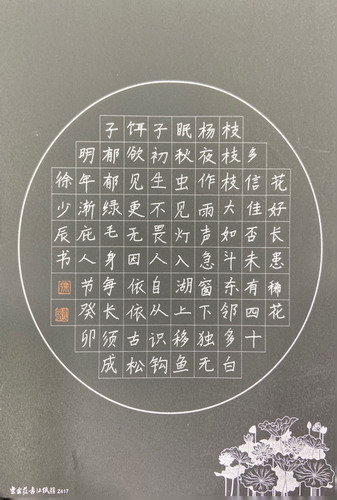 花好长患稀花
多信佳否未有四十
枝枝枝大如斗东邻多白
杨夜作雨声急窗下独无
眠秋虫见灯入湖上移鱼
子初生不畏人自从识钩
饵欲见更无因依依古松
子郁郁绿毛身每长须成
明年渐庇人节癸卯
徐少辰书
2017